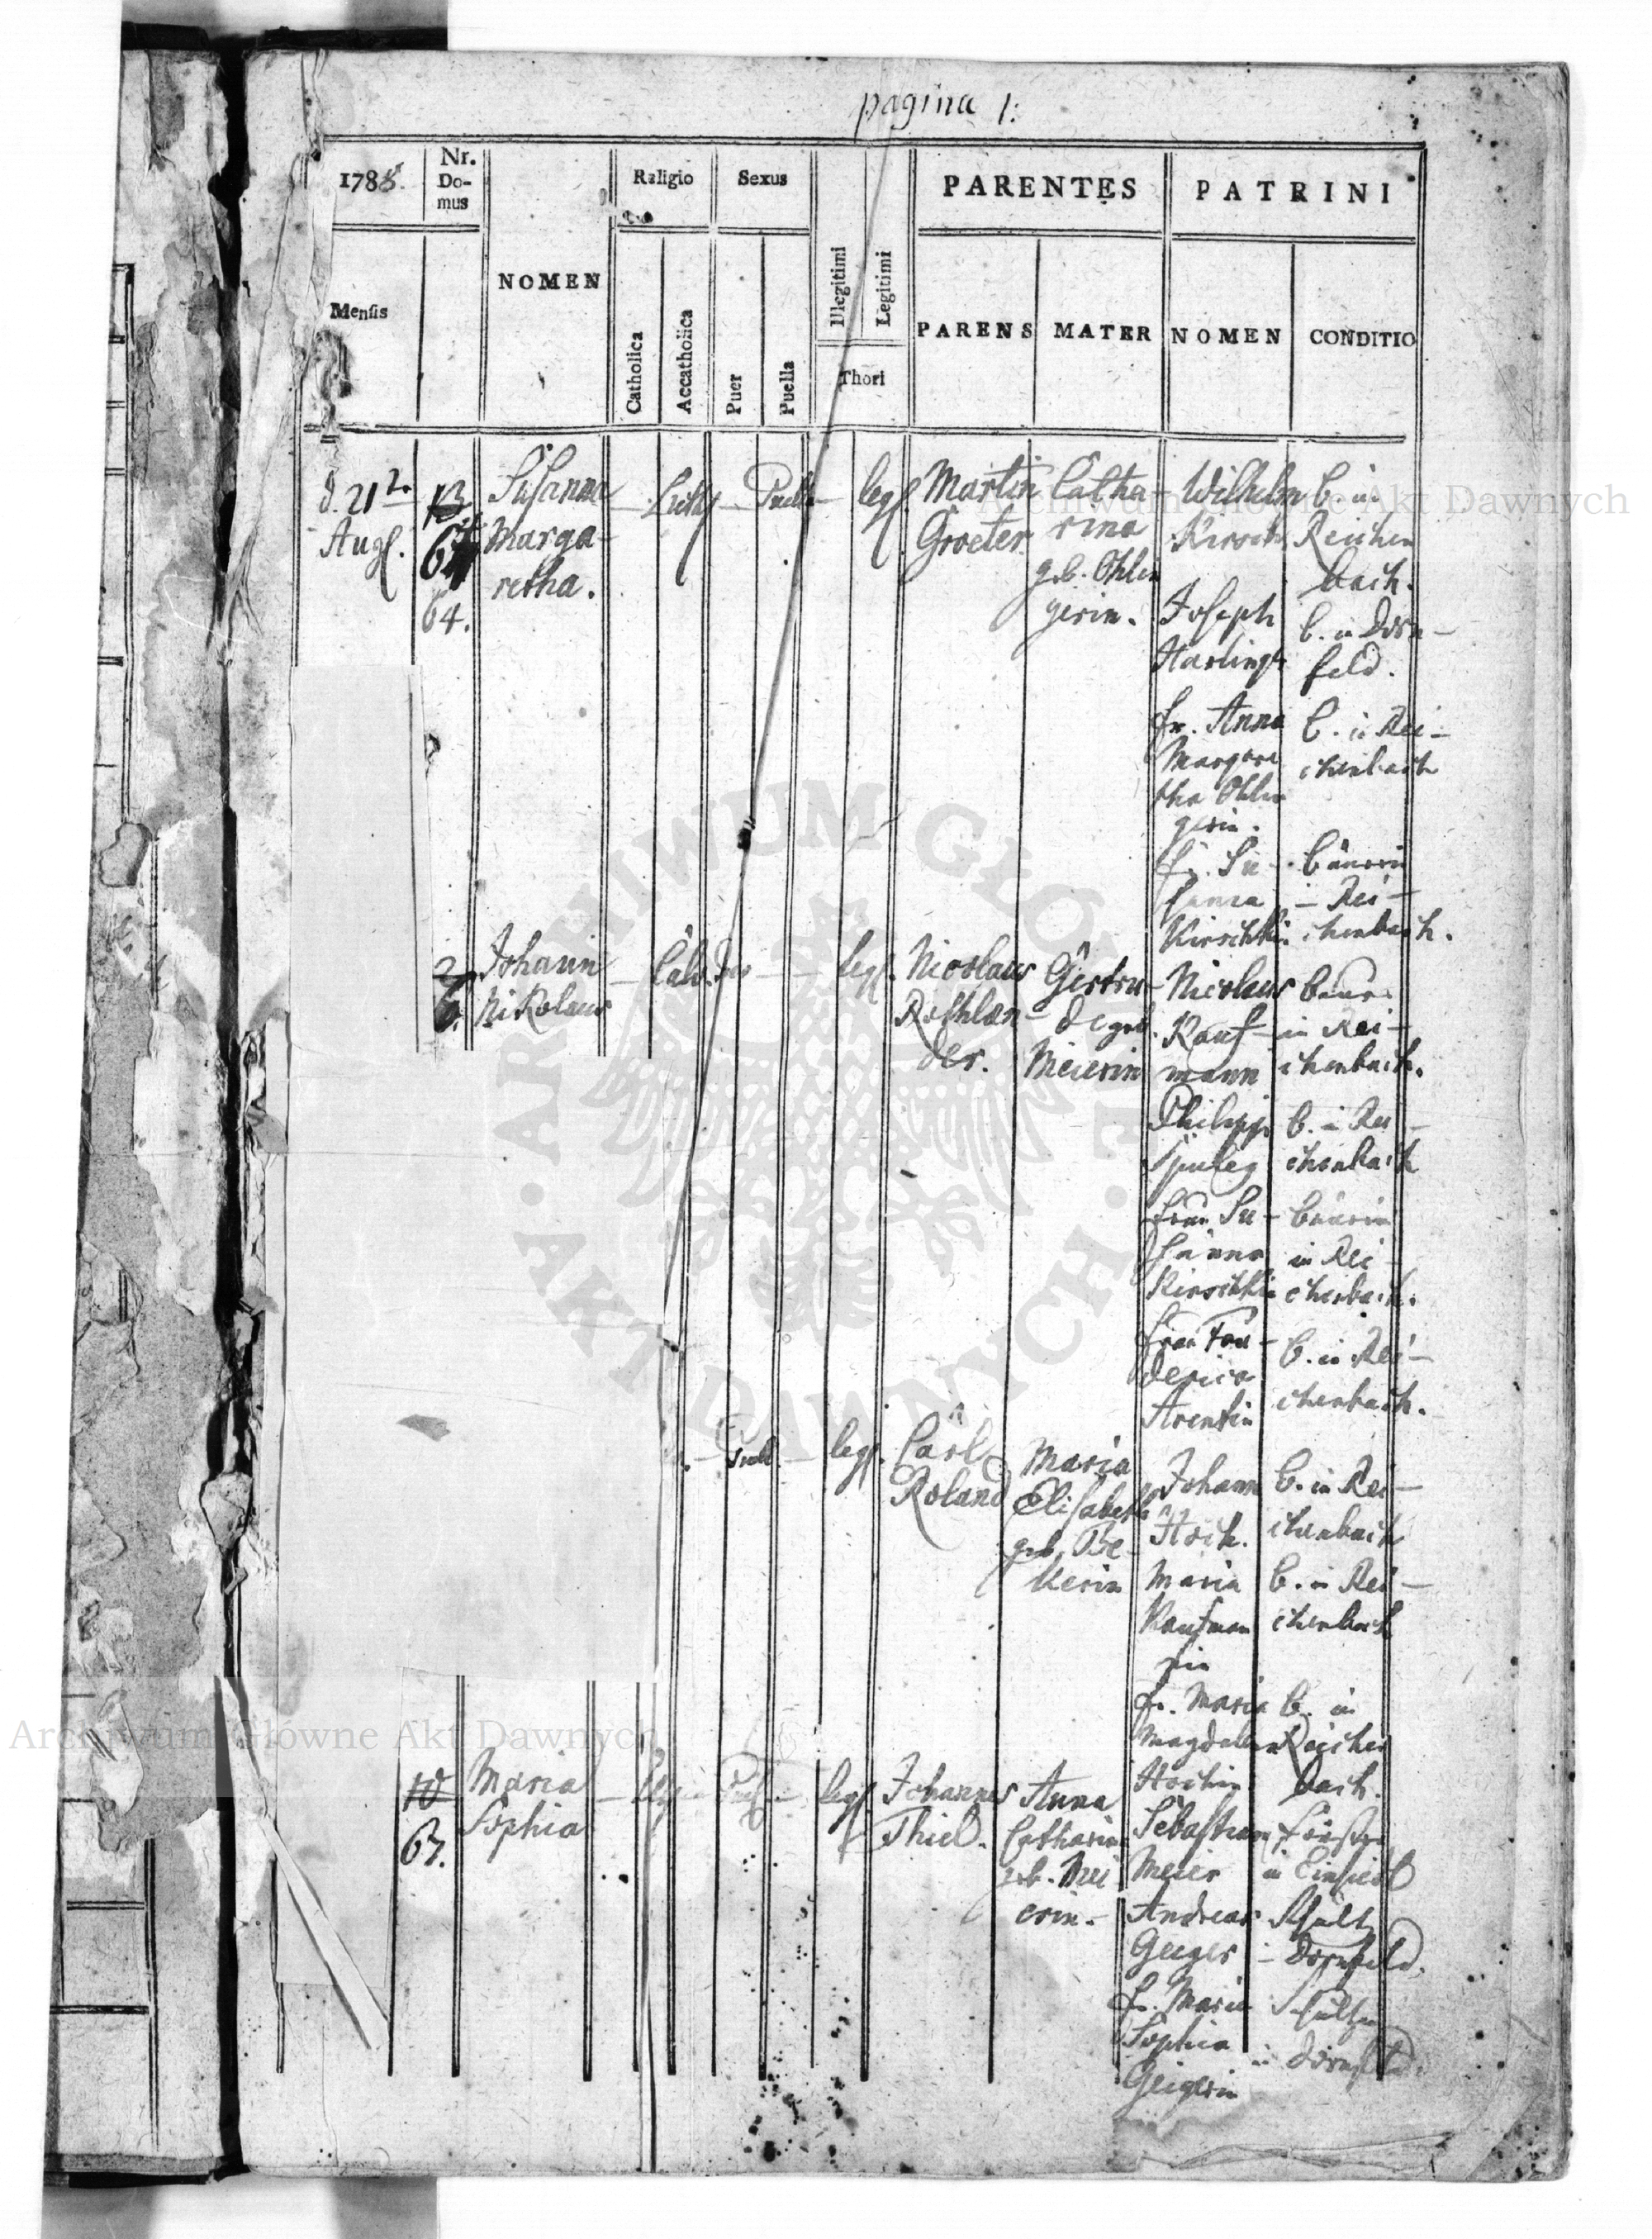 pagina 1:
1785.
Nr.
Do-
mus
Religio
Sexus
PARENTES
PATRINI
Mensis
NOMEN
Catholica
Accatholica
Puer
Puella
Illegitimi
Legitimi
Thori
PARENS
MATER
NOMEN
CONDITIO
d. 21
Aug.
13
64.
Susanna
Marga-
retha.
Puella
leg.
Martin
Groeter.
Catha
rina
geb. Ohlin
gerin.
Wilhelm
Kirsch
Joseph
Harlinger
fr. Anna
Margare
tha Ohlin
gerin.
fr. Su-
sanna
Kirschin
b. in
Reichen
bach.
b. in Dorn-
feld.
b. in Rei-
chenbach
bäurin
in Rei-
chenbach.
Johann
Nikolaus
Calv.
leg.
Nicolaus
Rothlän-
der.
Gertru-
de geb.
Meierin
Nicolaus
Kauf-
mann
Philipp
frau Su-
sanna
Kirschin
frau
derica
Arentin
baur
in Rei-
chenbach.
b. in Rei-
chenbach
bäurin
in Rei-
chenbach.
b. in Rei-
chenbach.
Puell
leg.
Carl
Roland
Maria
Elisabeth
geb. Be-
kerin
Johann
Hoch.
Maria
Kaufman
nin
fr. Maria
Magdalena
Hochin
b. in Rei-
chenbach
b. in Rei-
chenbach
b. in
Reichen
bach.
10
67.
Maria
Sophia
leg.
Johannes
Thiel.
Anna
Catharina
geb. Mei
erin.
Sebastian
Meier
Andreas
Geiger
fr. Maria
Sophia
Geigerin
in Einsiedl
Schultz
in Dornfeld.
Schultzin
in Dornfeld.
Archiwum Główne Akt Dawnych
Archiwum Główne Akt Dawnych
ARCHIWUM GŁÓWNE · AKT DAWNYCH ·